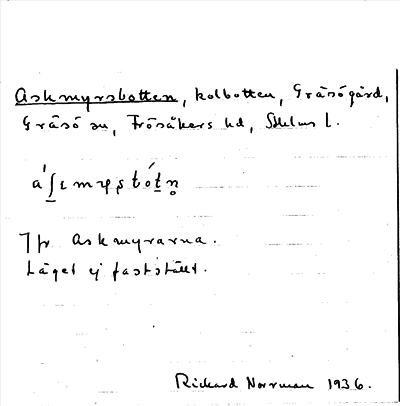 Askmyrsbotten, kolbotten, Gräsögård,
Gräsö sn, Frösåkers hd, Sthlms l.
Jfr Askmyrarna.
Läget ej fastställt.
Rickard Norrman 1936.